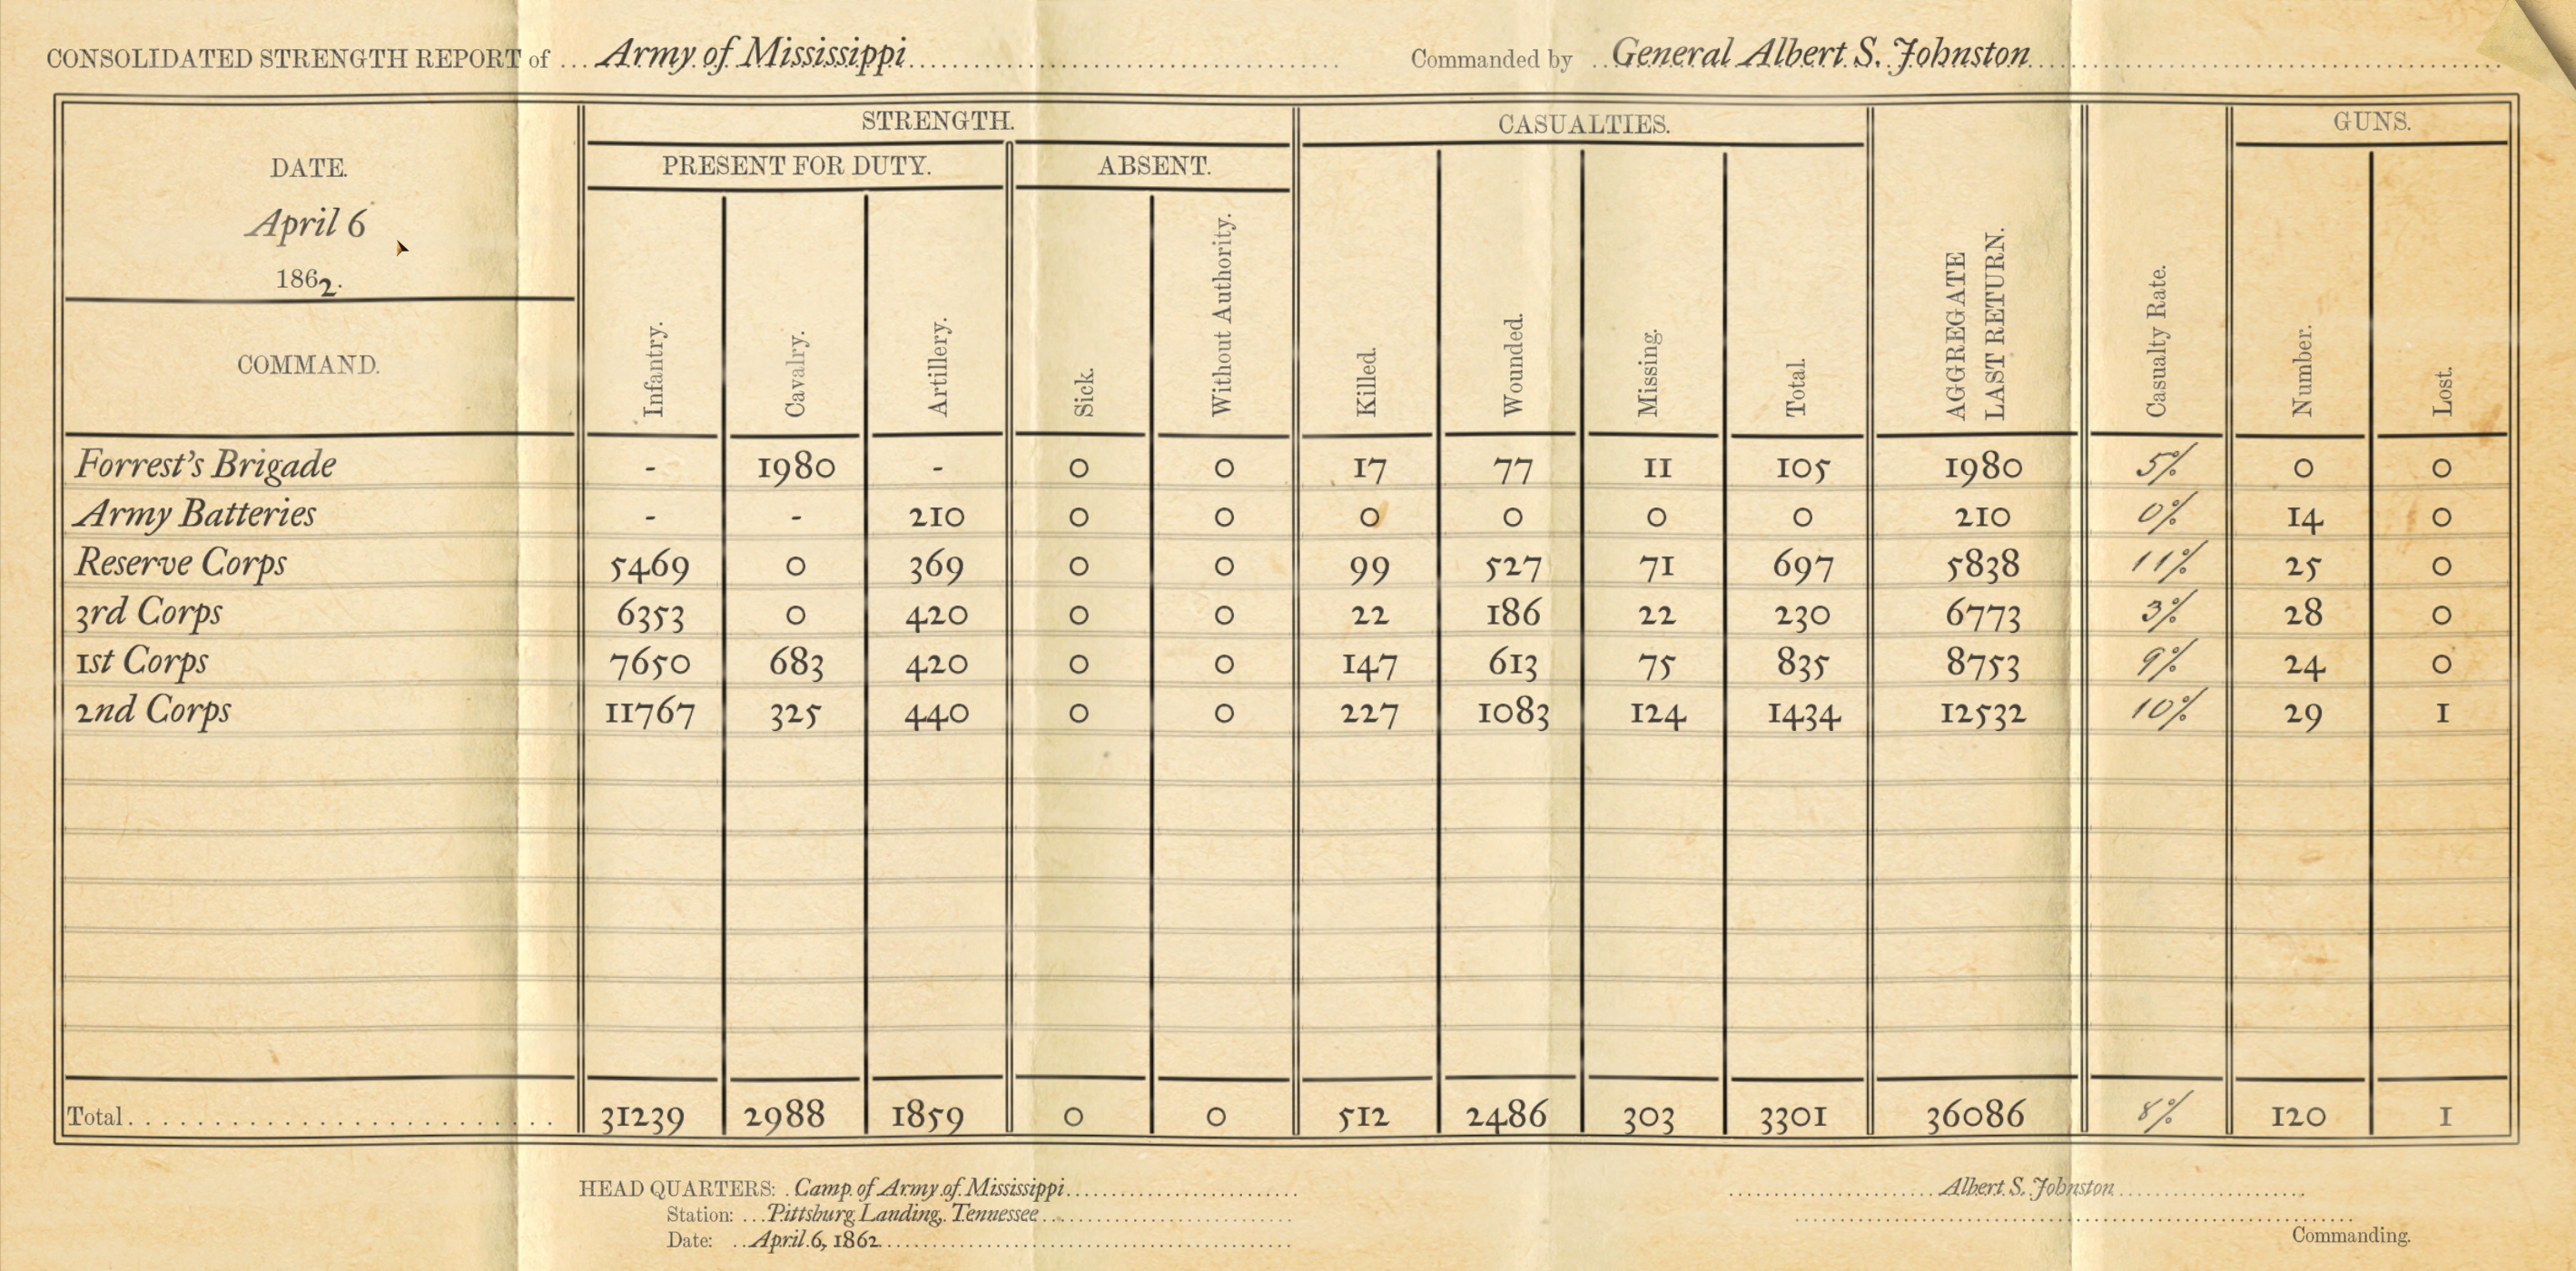 CONSOLIDATED STRENGTH REPORT of ... Army of Mississippi
Commanded by General Albert S. Johnston
DATE.
April 6
1862.
COMMAND.
STRENGTH.
PRESENT FOR DUTY.
ABSENT.
CASUALTIES.
GUNS.
Infantry.
Cavalry.
Artillery.
Sick.
Without Authority.
Killed.
Wounded.
Missing.
Total.
AGGREGATE
LAST RETURN.
Casualty Rate.
Number.
Lost.
Forrest's Brigade - 1980 - 0 0 17 77 11 105 1980 5% 0 0
Army Batteries - - 210 0 0 0 0 0 0 210 0% 14 0
Reserve Corps 5469 0 369 0 0 99 527 71 697 5838 11% 25 0
3rd Corps 6353 0 420 0 0 22 186 22 230 6773 3% 28 0
1st Corps 7650 683 420 0 0 147 613 75 835 8753 9% 24 0
2nd Corps 11767 325 440 0 0 227 1083 124 1434 12532 10% 29 1
Total 31239 2988 1859 0 0 512 2486 303 3301 36086 8% 120 1
HEAD QUARTERS: Camp of Army of Mississippi
Station: Pittsburg Landing, Tennessee
Date: April 6, 1862
Albert S. Johnston
Commanding.